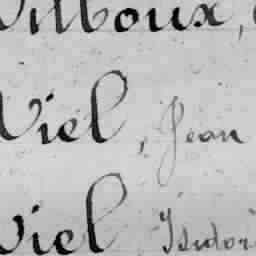 Villoux,
Viel, Jean
Viel, Isidor